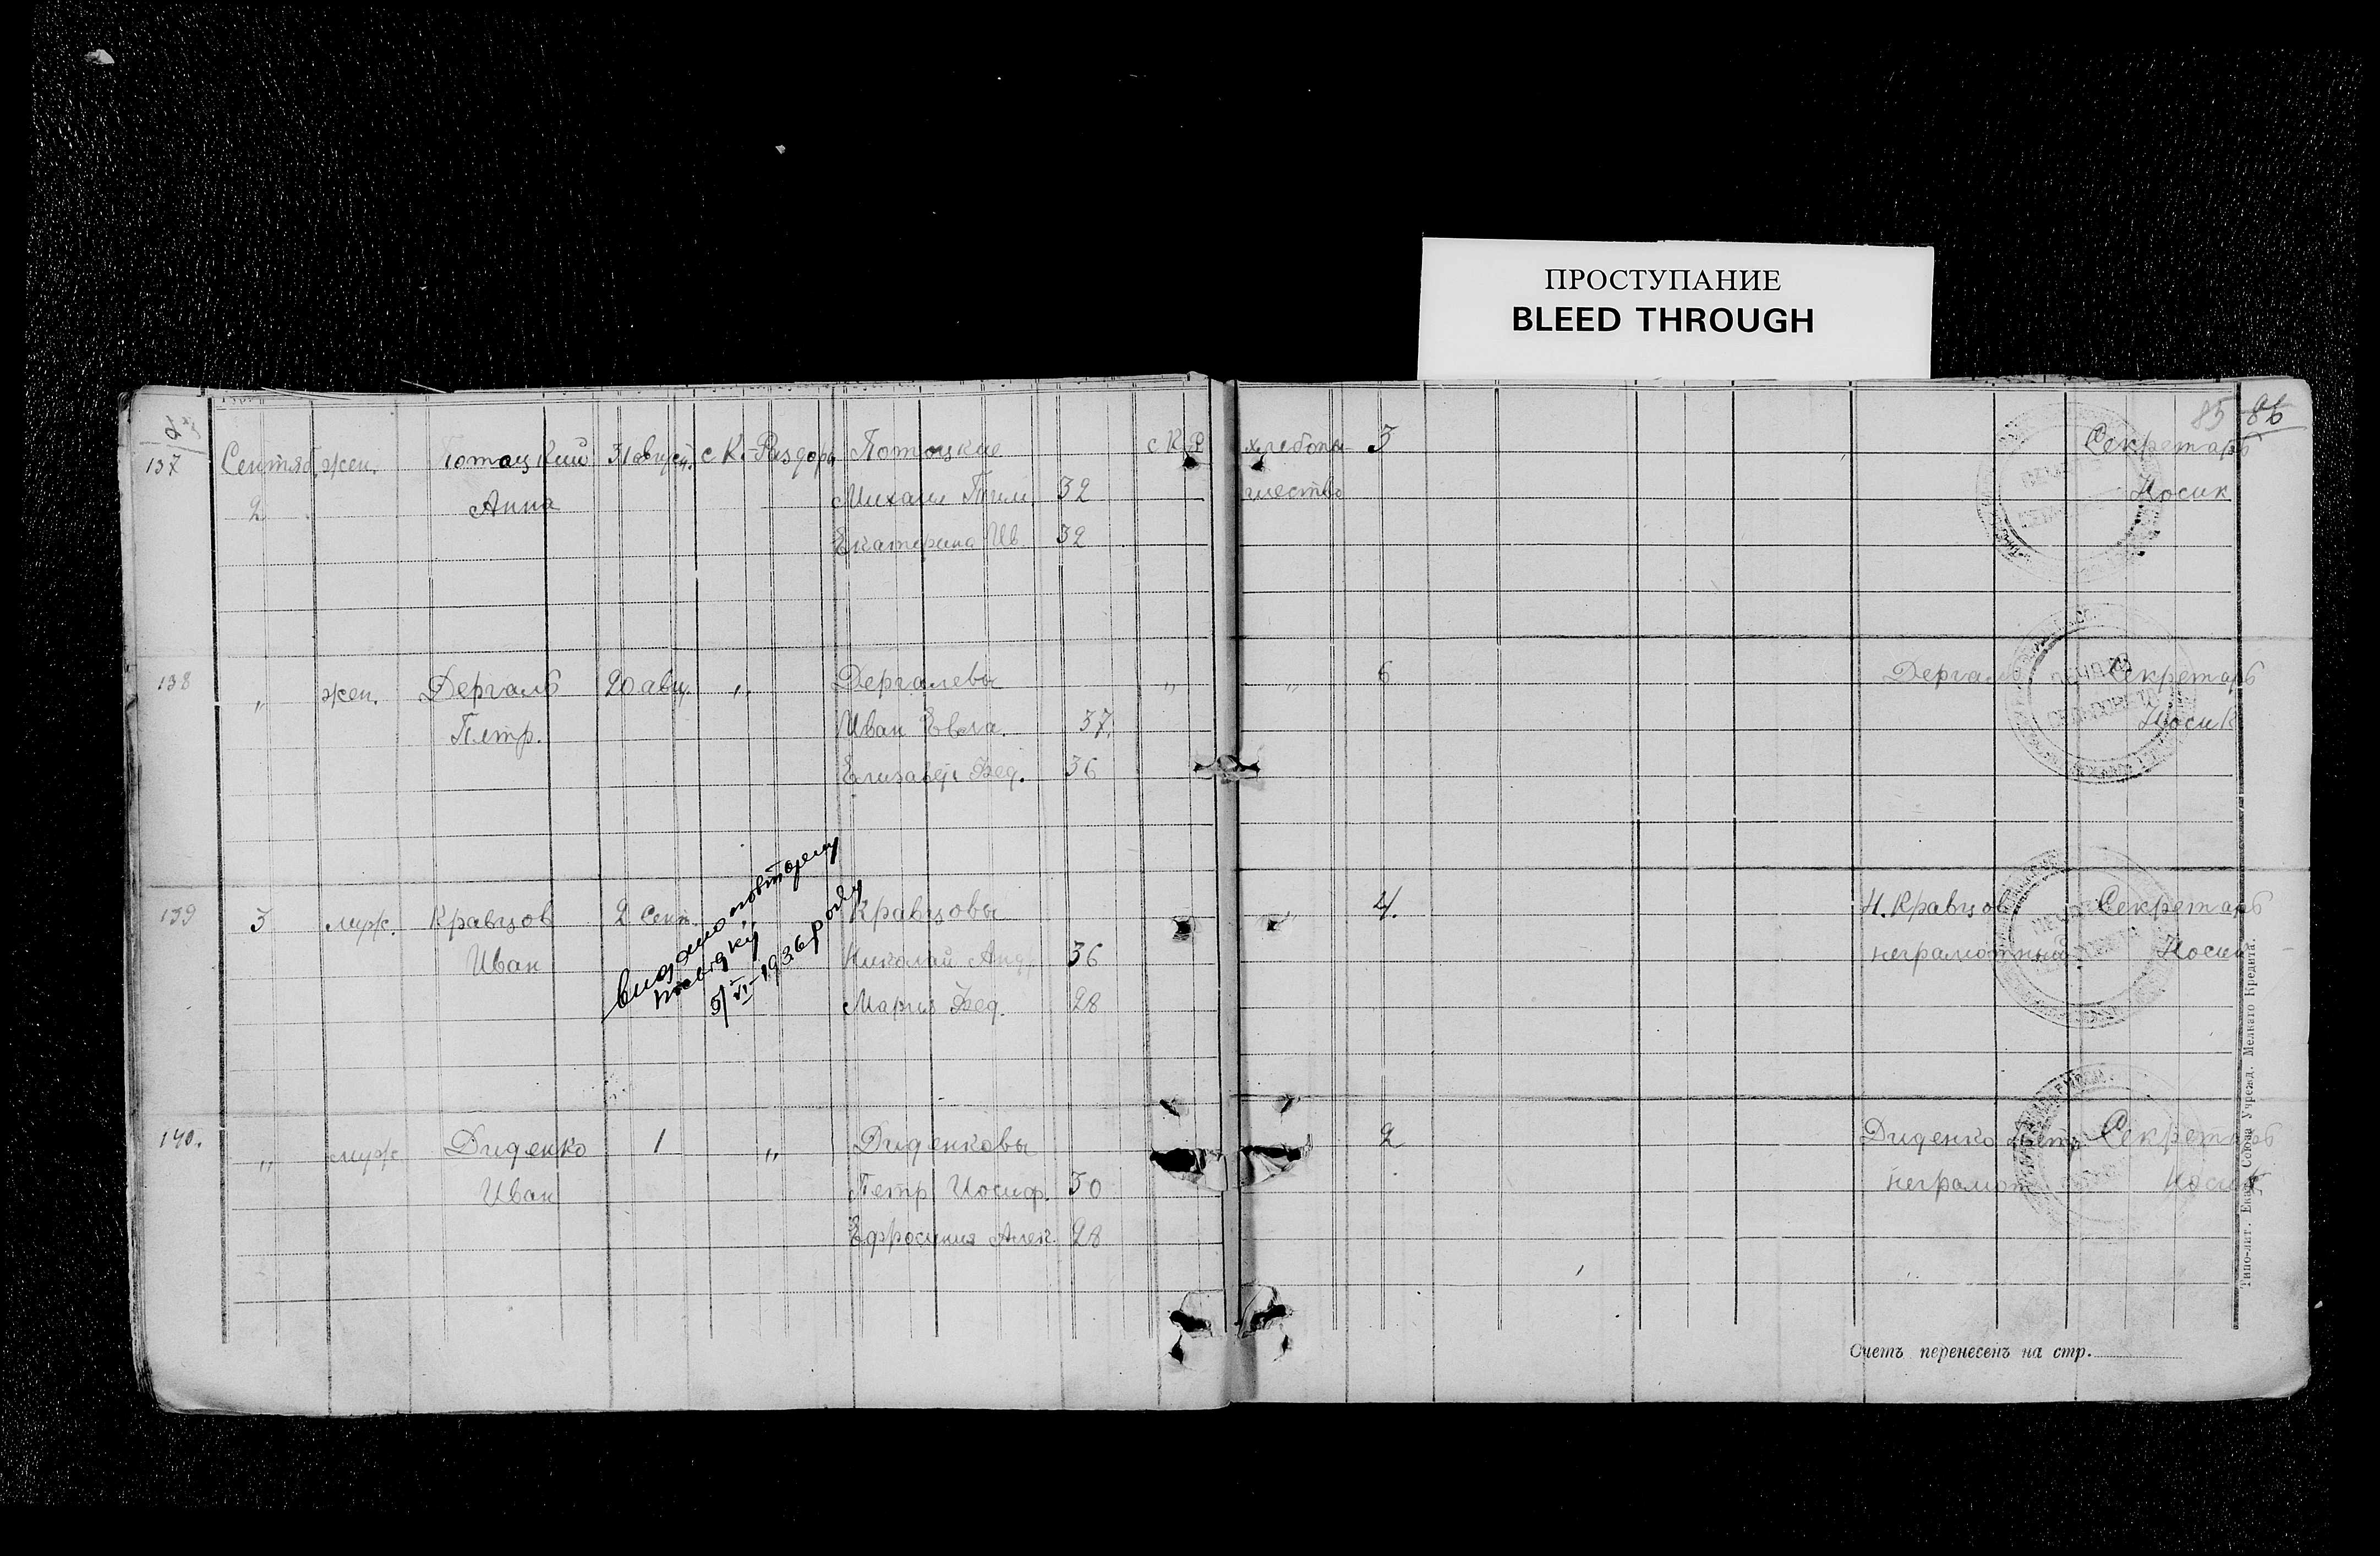 ПРОСТУПАНИЕ
BLEED THROUGH
85 86
137 Сентяб. жен. Потоцкий 31 август. с К.-Раздоры Потоцкие с К-Р хлебопа- 3 Секретарь
2 Анна Михаил Тим. 32 шество Носик
Екатерина Ив. 32
138 " жен. Дергаль 20 авг. " Дергалевы " " 6 Дергаль Секретарь
Петр. Иван Евла. 37. Носик
Елизавета Фед. 36
139 3 муж. Кравцов 2 Сент. Кравцовы " 4. Н. Кравцов Секретарь
Иван Николай Анд. 36 неграмотный Носик
Мария Фед. 28
видано повторну
5/VI-1936 року
140. " муж Диденко 1 " Диденковы 2 Диденко Петр Секретарь
Иван Петр Иосиф. 30 неграмот Носик
Ефросиния Алек. 28
Типо-лит. Екат. Союза Учрежд. Мелкаго Кредита.
Счетъ перенесенъ на стр.